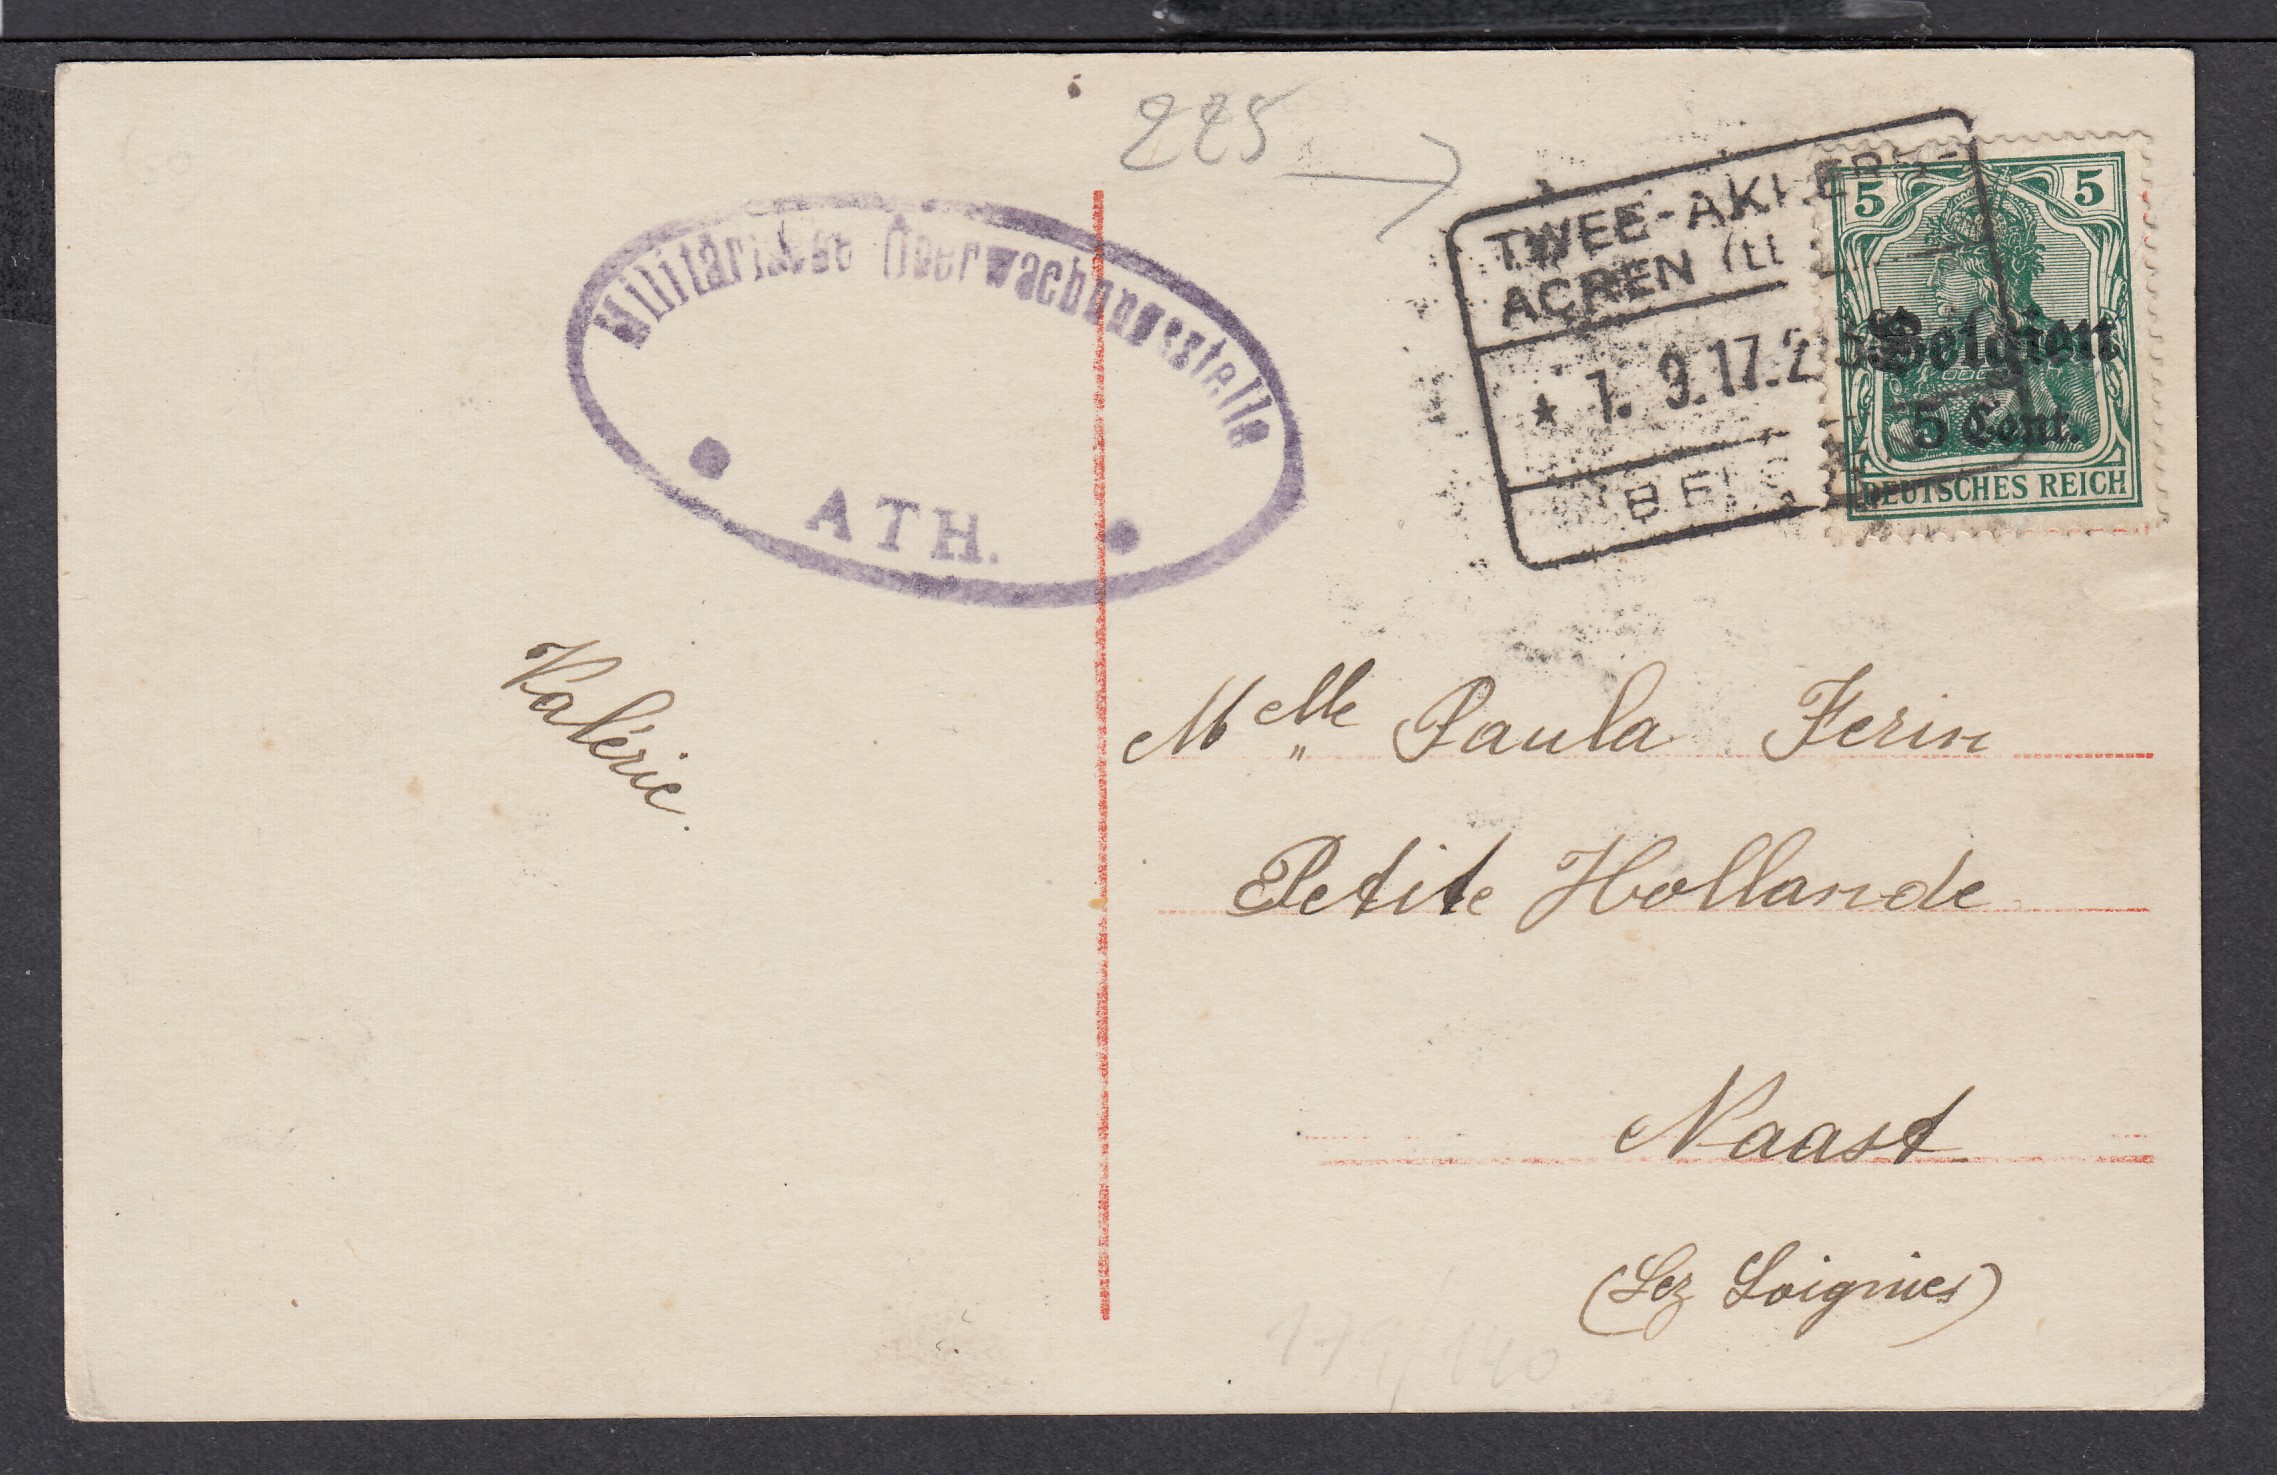 225
Militärische Überwachungsstelle
ATH.
TWEE-AKKERS-
ACREN (LE
* 1. 9.17.2
BELG
5 5
Belgien
5 Cent.
DEUTSCHES REICH
Valérie.
Melle Paula Ferin
Petite Hollande
Naast
(Lez Soignies)